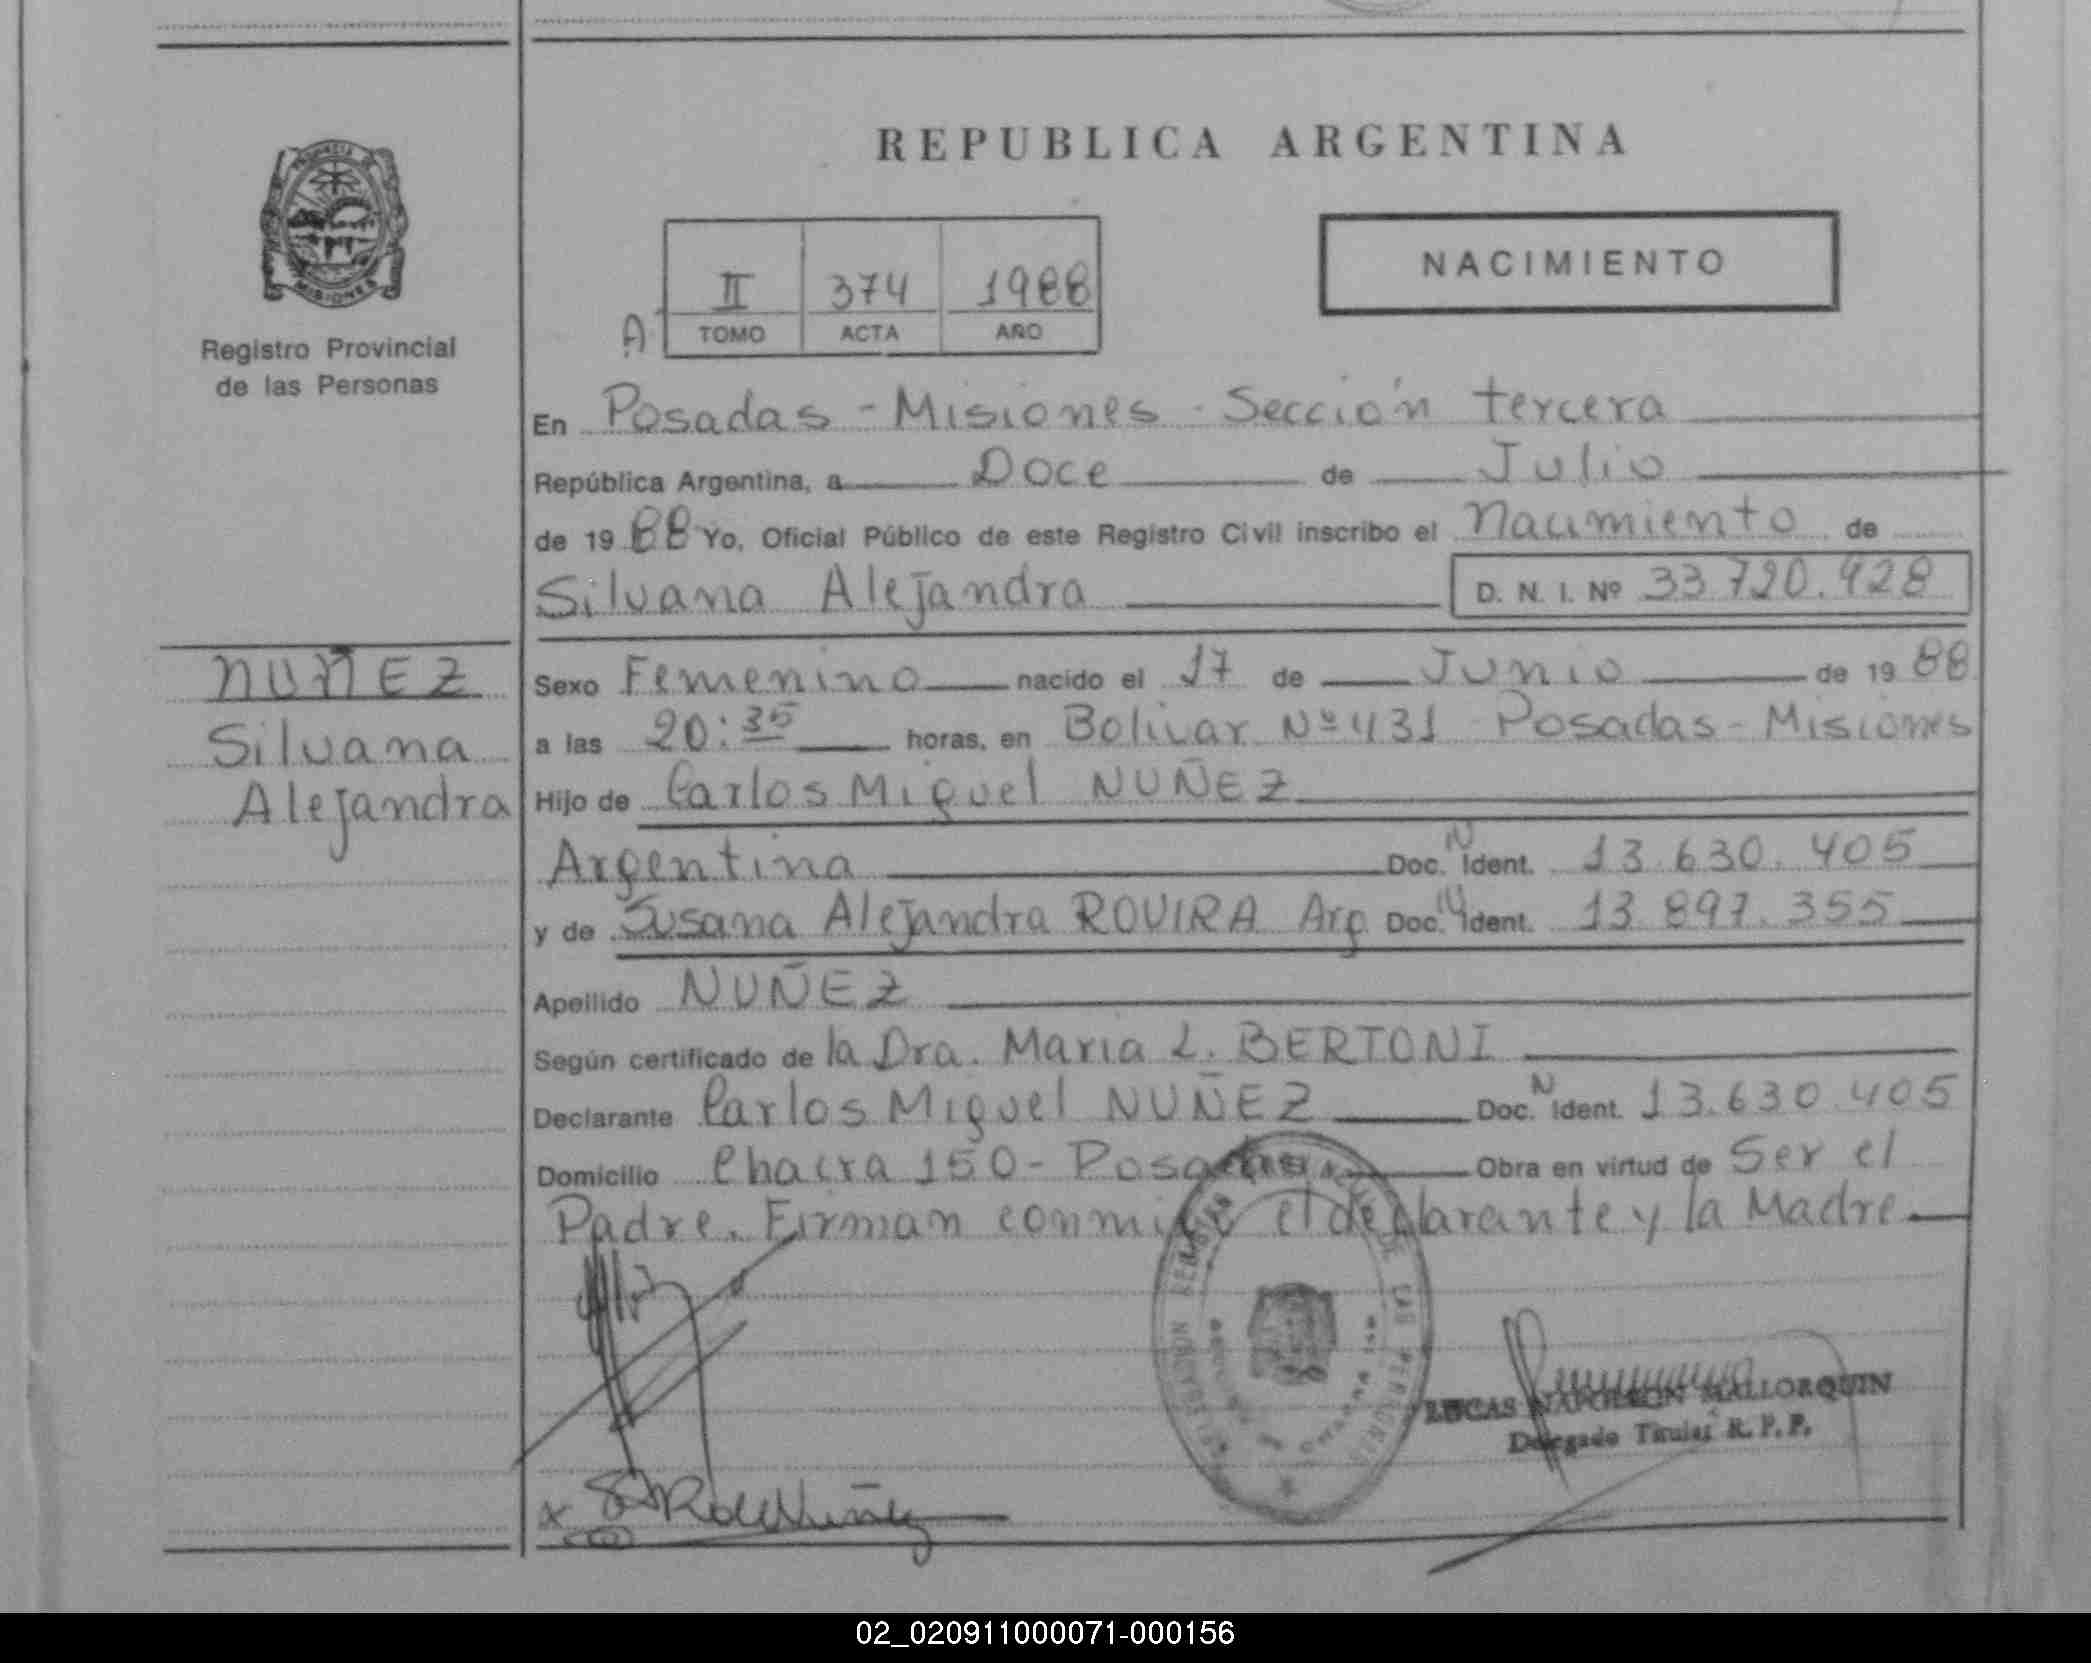 REPUBLICA ARGENTINA
NACIMIENTO
II 374 1988
A TOMO ACTA AÑO
PROVINCIA DE
MISIONES
Registro Provincial
de las Personas
En Posadas - Misiones - Sección tercera
República Argentina, a Doce de Julio
de 19 88 Yo, Oficial Público de este Registro Civil inscribo el Nacimiento de
Silvana Alejandra D. N. I. Nº 33.720.428
NUÑEZ
Silvana
Alejandra
Sexo Femenino nacido el 17 de Junio de 19 88
a las 20:35 horas, en Bolivar Nº 431 Posadas - Misiones
Hijo de Carlos Miguel NUÑEZ
Argentina Doc. N Ident. 13.630.405
y de Susana Alejandra ROVIRA Arg Doc. N Ident. 13.897.355
Apellido NUÑEZ
Según certificado de la Dra. Maria L. BERTONI
Declarante Carlos Miguel NUÑEZ Doc. N Ident. 13.630.405
Domicilio Chacra 150 - Posadas Obra en virtud de Ser el
Padre. Firman conmigo el declarante y la Madre
DE LAS PERSONAS
LUCAS NAPOLEON MALLORQUIN
Delegado Titular R. P. P.
02_020911000071-000156